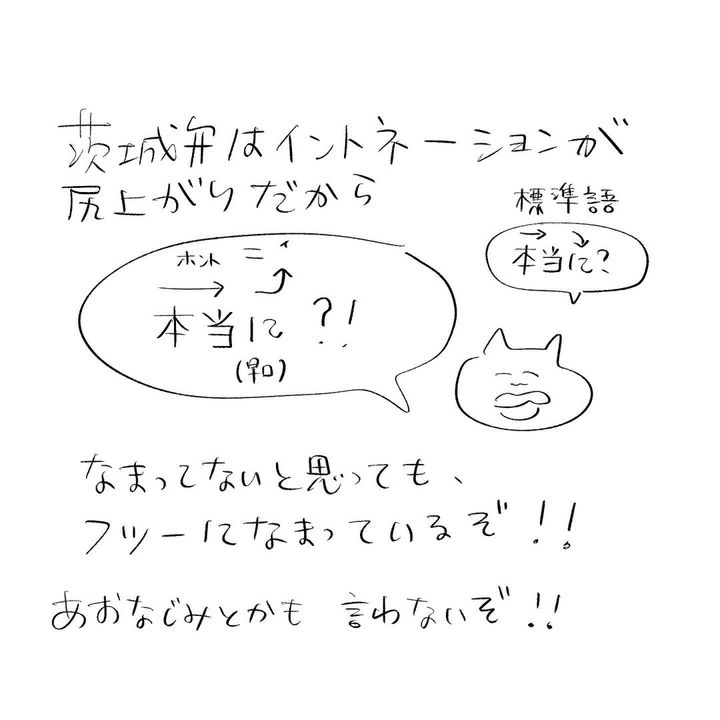 茨城弁はイントネーションが
尻上がりだから
標準語
→ ⤵
本当に?
ホント ニィ
→ ⤴
本当に?!
(早口)
なまってないと思っても、
フツーになまっているぞ!!
あおなじみとかも 言わないぞ!!